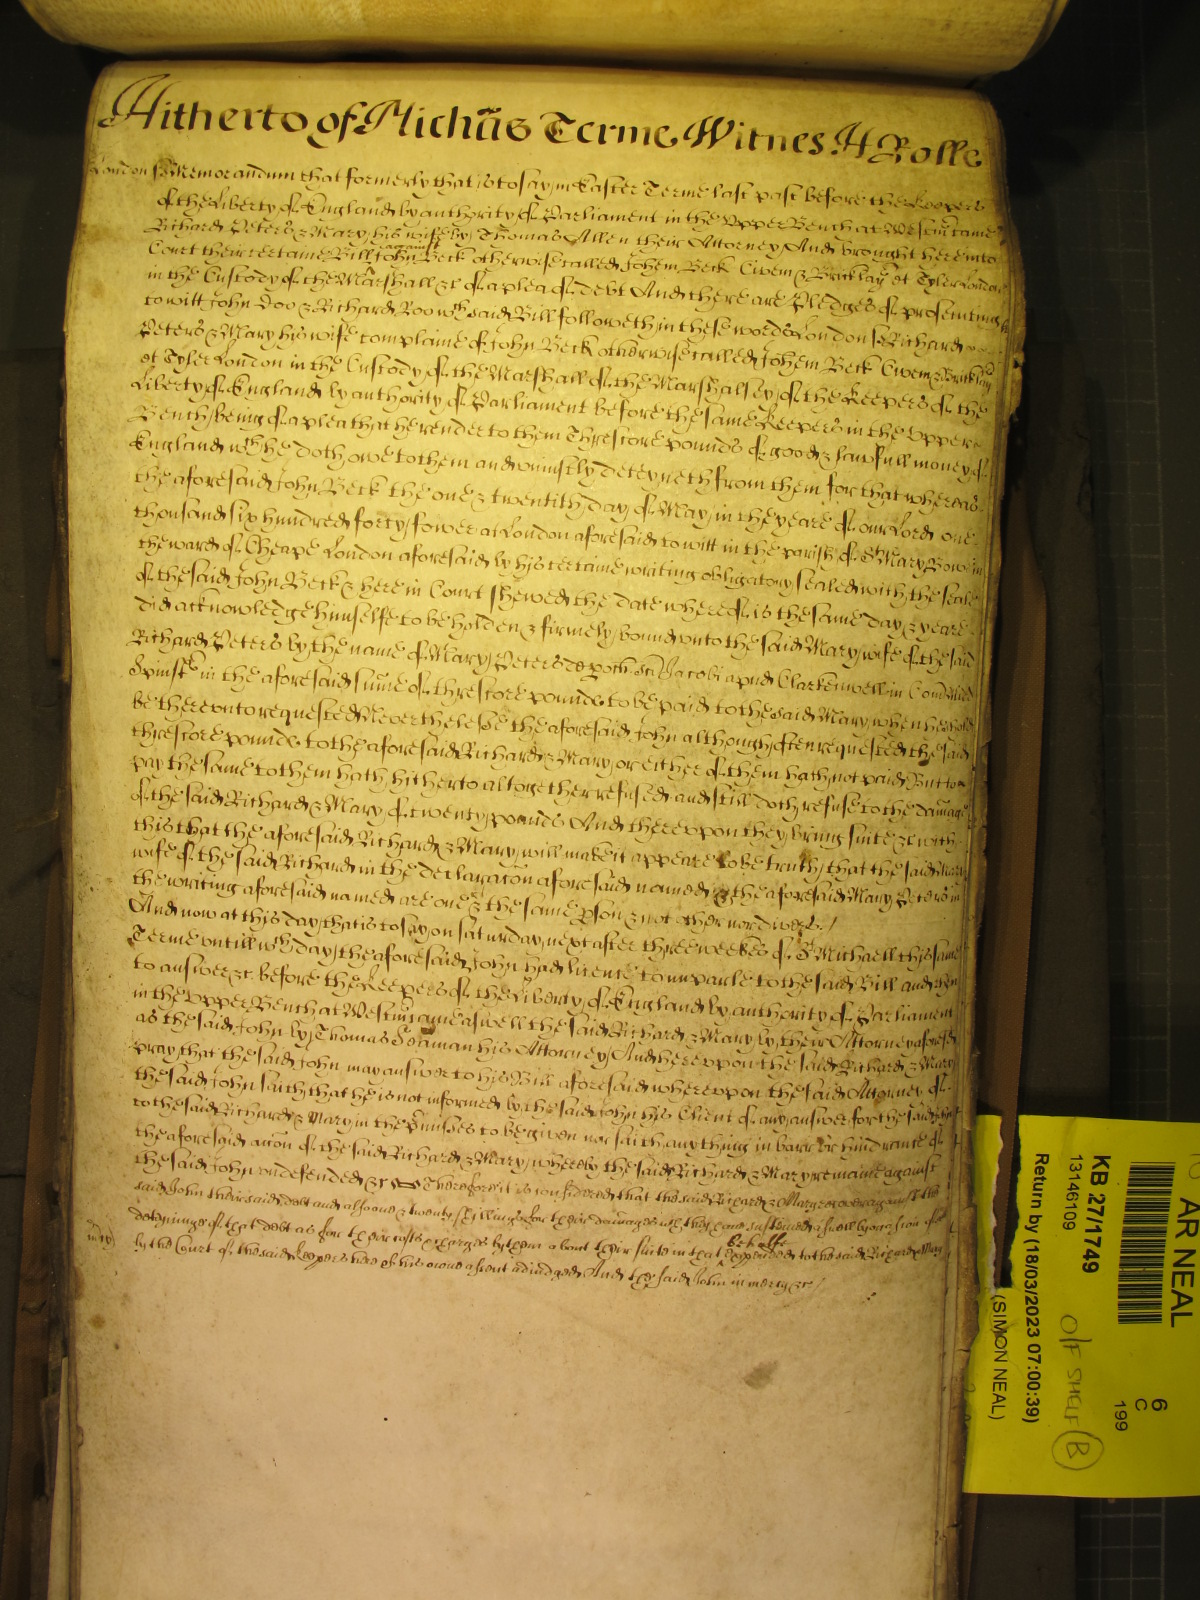 Hitherto of Michās Terme Witnes H Rolle
London s Memorandum that formerly that is to say in Easter Terme last past before the Keepers
of the Liberty of England by authority of Parliament in the Upper Bench at Westm̄ came
Richard Peters & Mary his wife by Thomas Allen their Attorney And brought here into
Court their certaine Bill against John Beck otherwise called Johem Beck Civem & Bricklay et Tyler London
in the Custody of the Marshall &c of a plea of debt And there are Pledges of prosecuting
to witt John Doo & Richard Roo wch said Bill followeth in these words London s Richard
Peters & Mary his wife complaine of John Beck otherwise called Johem Beck Civem & Bricklay
et Tyler London in the Custody of the Marshall of the Marshallsey of the Keepers of the
Liberty of England by authority of Parliament before the same Keepers in the Upper
Bench being of a plea that he render to them Threscore pounds of good & lawfull money of
England wch he doth owe to them and uniustly deteyneth from them for that whereas
the aforesaid John Beck the one & twentith day of May in the yeare of our Lord one
thousand six hundred forty fower at London aforesaid to witt in the parish of St Mary Bow in
the ward of Cheape London aforesaid by his certaine writing obligatory sealed with the seale
of the said John Beck & here in Court shewed the date whereof is the same day & yeare
did acknowledge himselfe to be holden & firmely bound unto the said Mary wife of the said
Richard Peters by the name of Mary Peters de poch Sci Jacobi apud Clarkenwell in Com Midd
Spinster in the aforesaid sum̄e of threscore pounds to be paid to the said Mary when he should
be thereunto requested Neverthelesse the aforesaid John although often requested the said
threscore pounds to the aforesaid Richard & Mary or either of them hath not paid But to
pay the same to them hath hitherto altogether refused and still doth refuse to the damage
of the said Richard & Mary of twenty pounds And thereupon they bring suite &c with
this that the aforesaid Richard & Mary will make it appeare to be truth that the said Mary
wife of the said Richard in the declaracon aforesaid named & the aforesaid Mary Peters in
the writing aforesaid named are one & the same pson & not other nor divers /
And now at this day that is to say on Saturday next after three weekes of St Michaell this same
Terme untill wch day the aforesaid John had licence to imparle to the said Bill and then
to answer &c before the Keepers of the Liberty of England by authority of Parliament
in the Upper Bench at Westm̄ came aswell the said Richard & Mary by their Attorney aforesd
as the said John by Thomas Seaman his Attorney And hereupon the said Richard & Mary
pray that the said John may answer to his Bill aforesaid whereupon the said Attorney of
the said John saith that he is not informed by the said John his Client of any answer for the said John
to the said Richard & Mary in the p̄misses to be given nor saith any thing in barr or hindrance of
the aforesaid accon of the said Richard & Mary whereby the said Richard & Mary remaine against
the said John undefended &c Therefore it is considered that the said Richard & Mary recover against the
said John their said debt and alsoe & twenty shillings for their damages wch they have susteined aswell by occasion of the
deteyninge of that debt as for their costs & charges by them about their suite in that behalfe expended to the said Richard & Mary
by the Court of the said Keepers here of his owne assent adiudged And the said John in mercy &c /
AR NEAL
6
C
199
KB 27/1749
13146109
Return by (18/03/2023 07:00:39)
(SIMON NEAL)
O/F SHELF B